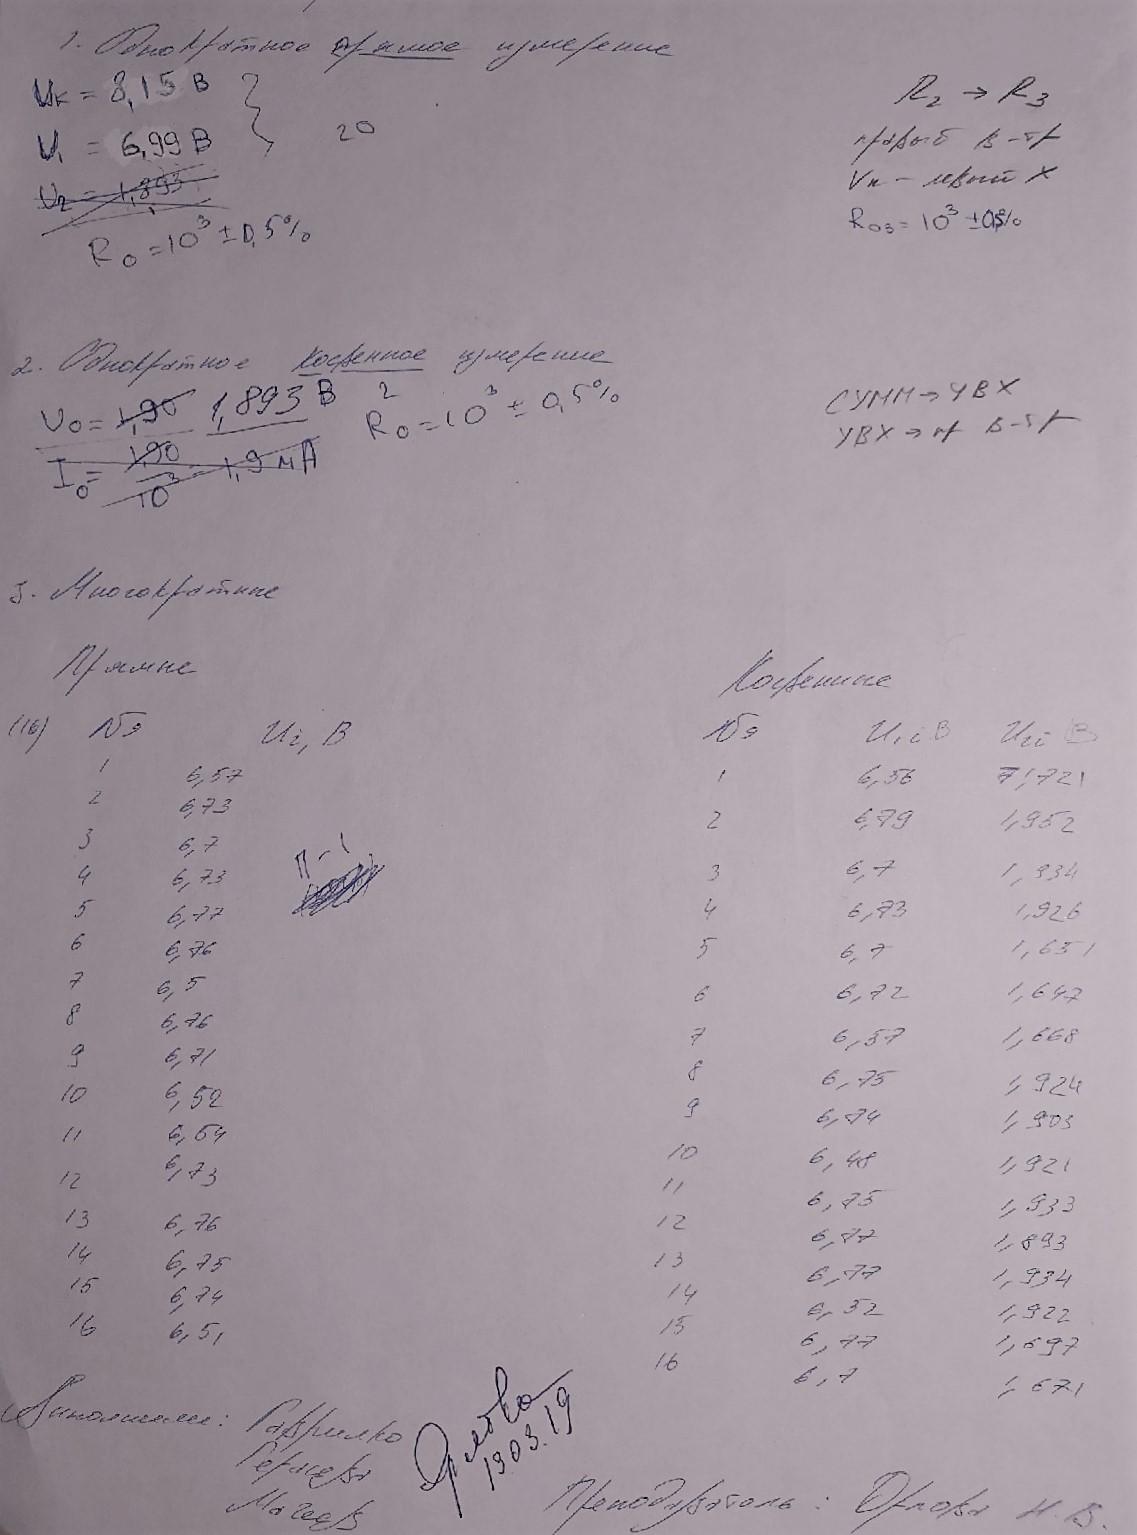 1. Однократное прямое измерение
Uк = 8,15 В
U1 = 6,99 В
20
U2 = 1,893
R0 = 10³ ± 0,5%
R2 → R3
правый В-тр
Vк - левый X
R03 = 10³ ± 0,5%
2. Однократное косвенное измерение
U0 = 1,90 1,893 В 2
R0 = 10³ ± 0,5%
I0 = 1,90 / 10³ = 1,9 мА
СУММ → УВХ
УВХ → пр В-тр
3. Многократные
Прямые
(16) №э Ui, В
1 6,57
2 6,73
3 6,7
4 6,73
5 6,77
6 6,76
7 6,5
8 6,76
9 6,71
10 6,52
11 6,54
12 6,73
13 6,76
14 6,75
15 6,74
16 6,51
П-1
Косвенные
№э U1i В U2i В
1 6,56 1,721
2 6,79 1,952
3 6,7 1,934
4 6,73 1,926
5 6,7 1,651
6 6,72 1,647
7 6,57 1,668
8 6,75 1,924
9 6,74 1,903
10 6,48 1,921
11 6,75 1,933
12 6,77 1,893
13 6,77 1,934
14 6,52 1,922
15 6,77 1,697
16 6,7 1,671
Выполнили: Гаврилко
Магеев
19.03.19
Преподаватель: Орлова Н.В.